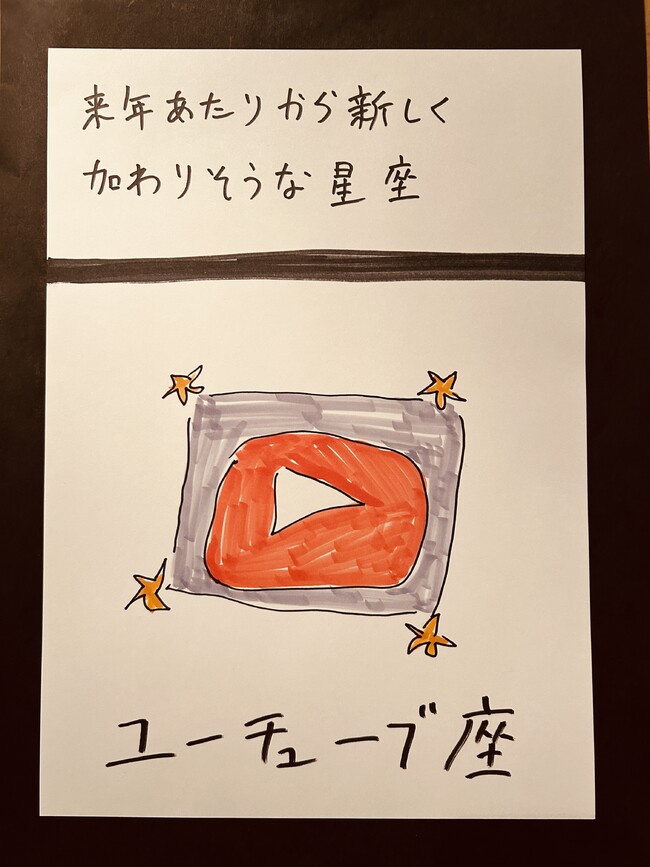 来年あたりから新しく
加わりそうな星座
ユーチューブ座